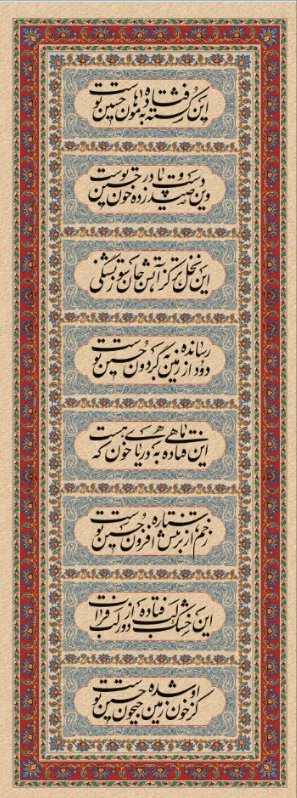 این کشته فتاده به هامون حسین توست
وین صید دست و پا زده در خون حسین توست
این نخل تر کز آتش جان سوز تشنگی
دود از زمین رسانده به گردون حسین توست
این ماهی فتاده به دریای خون که هست
زخم از ستاره بر تنش افزون حسین توست
این خشک لب فتاده دور از لب فرات
کز خون او زمین شده جیحون حسین توست